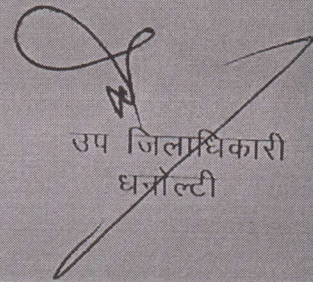 उप जिलाधिकारी
धनोल्टी